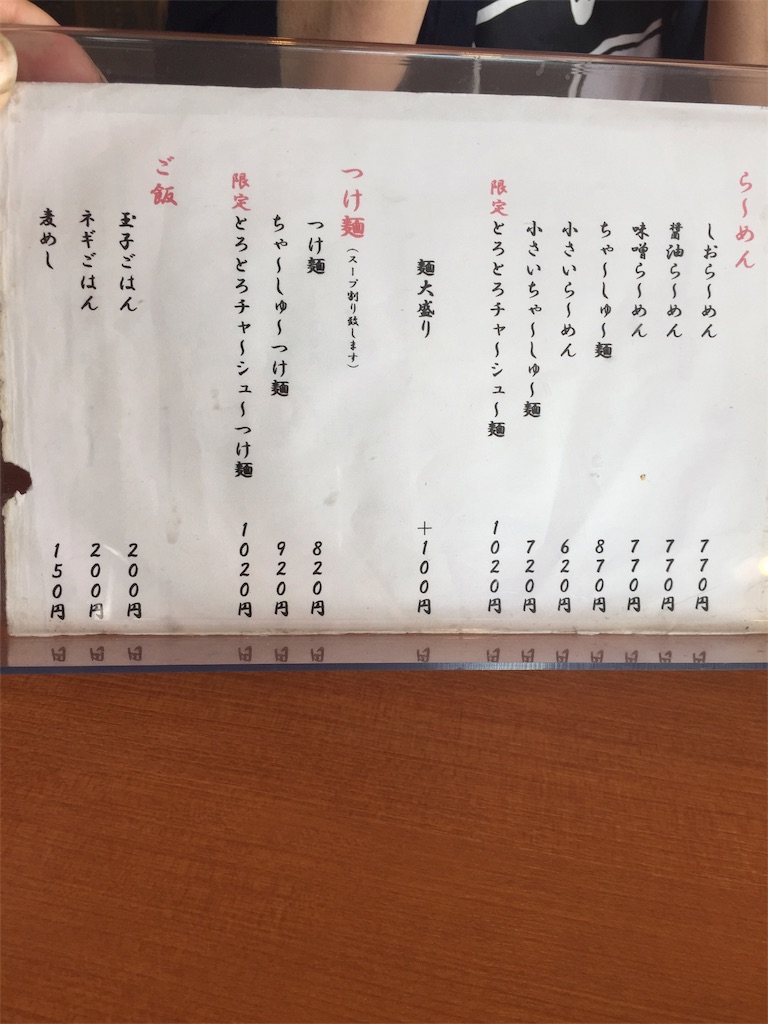 ら〜めん
しおら〜めん 770円
醤油ら〜めん 770円
味噌ら〜めん 770円
ちゃ〜しゅ〜麺 870円
小さいら〜めん 620円
小さいちゃ〜しゅ〜麺 720円
限定とろとろチャ〜シュ〜麺 1020円
麺大盛り +100円
つけ麺(スープ割り致します)
つけ麺 820円
ちゃ〜しゅ〜つけ麺 920円
限定とろとろチャ〜シュ〜つけ麺 1020円
ご飯
玉子ごはん 200円
ネギごはん 200円
麦めし 150円